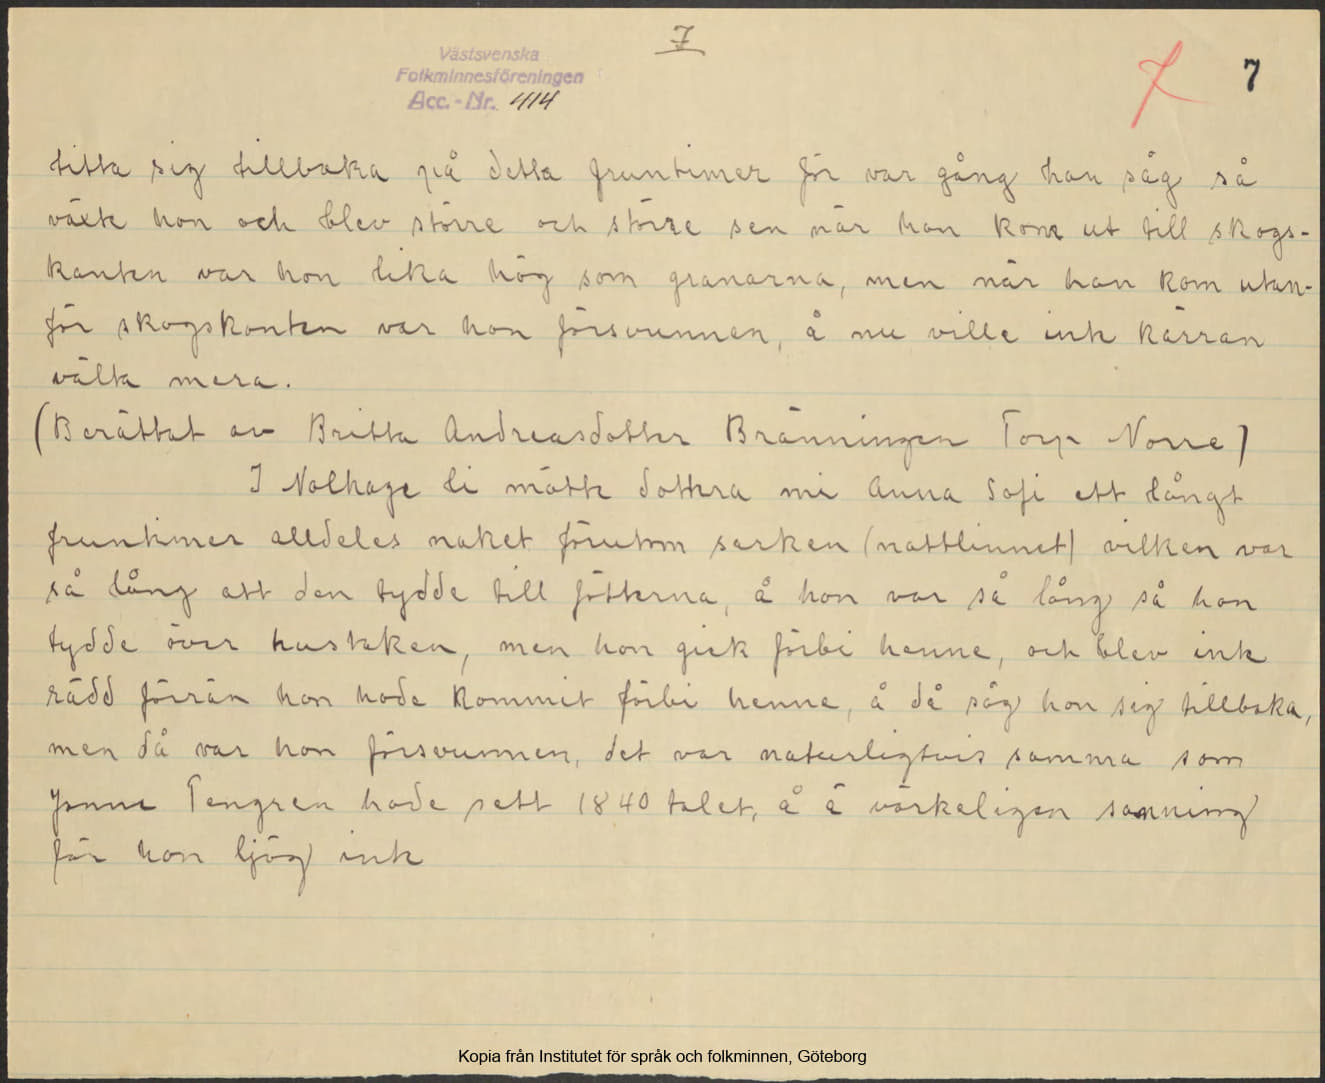 7
Västsvenska
Folkminnesföreningen
Acc.-Nr. 414
7 7
titta sig tillbaka på detta fruntimer för var gång han såg så
växte hon och blev större och större sen när han kom ut till skogs-
kanten var hon lika hög som granarna, men när han kom utan-
för skogskanten var hon försvunnen, å nu ville inte kärran
välta mera.
(Berättat av Britta Andreasdotter Bränningen Torp Norre)
I Nolhage li mötte dottera mi Anna Sofi ett långt
fruntimer alldeles naket förutom sarken (nattlinnet) vilken var
så lång att den tydde till fötterna, å hon var så lång så hon
tydde över hustaken, men hon gick förbi henne, och blev inte
rädd förrän hon hade kommit förbi henne, å då såg hon sig tillbaka,
men då var hon försvunnen, det var naturligtvis samma som
Tengren hade sett 1840 talet, å ä värkeligen sanning
för hon ljög inte
Kopia från Institutet för språk och folkminnen, Göteborg